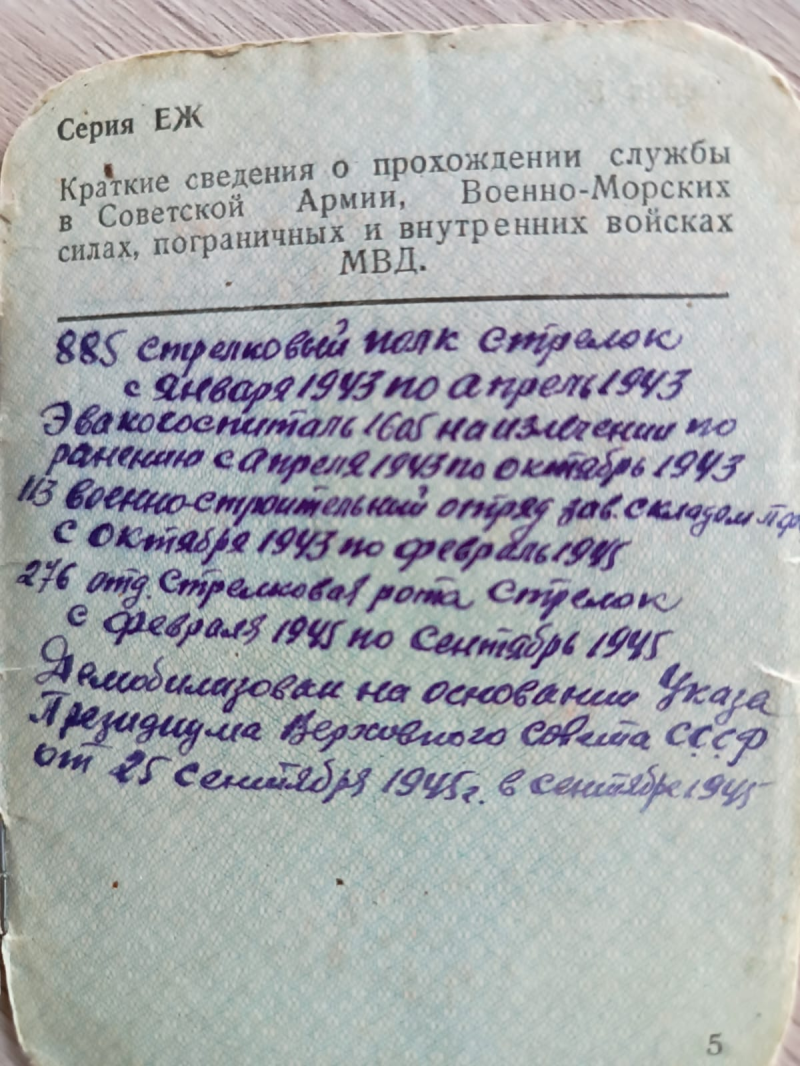 Серия ЕЖ
Краткие сведения о прохождении службы
в Советской Армии, Военно-Морских
силах, пограничных и внутренних войсках
МВД.
885 стрелковый полк стрелок
с января 1943 по апрель 1943
Эвакогоспиталь 1605 на излечении по
ранению с апреля 1943 по октябрь 1943
113 военно-строительный отряд зав. складом
с октября 1943 по февраль 1945
276 отд. стрелковая рота стрелок
с февраля 1945 по сентябрь 1945
Демобилизован на основании Указа
Президиума Верховного Совета СССР
от 25 сентября 1945 г. в сентябре 1945
5